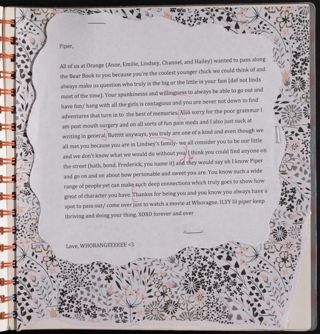 Piper,
All of us at Orange (Anne, Emilie, Lindsey, Channel, and Hailey) wanted to pass along
the Bear Book to you because you're the coolest younger chick we could think of and
always make us question who truly is the big or the little is your fam (def not linds
most of the time). Your spunkenness and willingness to always be able to go out and
have fun/ hang with all the girls is contagious and you are never not down to find
adventures that turn in to the best of memories. Also sorry for the poor grammar I
am post mouth surgery and on all sorts of fun pain meds and I also just suck at
writing in general. Butttt anyways, you truly are one of a kind and even though we
all met you because you are in Lindsey's family- we all consider you to be our little
and we don't know what we would do without you. I think you could find anyone on
the street (bath, bond, Frederick, you name it) and they would say oh I know Piper
and go on and on about how personable and sweet you are. You know such a wide
range of people yet can make such deep connections which truly goes to show how
great of character you have. Thanks for being you and you know you always have a
spot to pass out/ come over just to watch a movie at Whorange. ILYY lil piper keep
thriving and doing your thing. XOXO forever and ever
Love, WHORANGEEEEEE <3